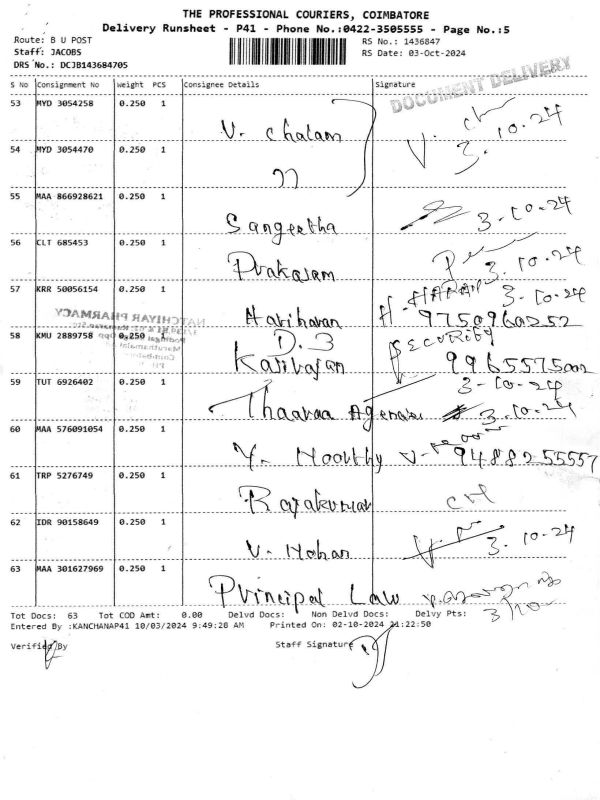 THE PROFESSIONAL COURIERS, COIMBATORE
Delivery Runsheet - P41 - Phone No.:0422-3505555 - Page No.:5
Route: B U POST
RS No.: 1436847
Staff: JACOBS
RS Date: 03-Oct-2024
DRS No.: DCJB143684705
DOCUMENT DELIVERY
S No Consignment No Weight PCS Consignee Details Signature
53 MYD 3054258 0.250 1 V. Chalam 3.10.24
54 MYD 3054470 0.250 1 ))
55 MAA 866928621 0.250 1 Sangeetha 3-10-24
56 CLT 685453 0.250 1 Prakasam 3.10.24
57 KRR 50056154 0.250 1 Hariharan H. HARAN 3-10-24
9750960252
NATCHIYAR PHARMACY
58 KMU 2889758 0.250 1 D.3 SECURITY
3-10-24
59 TUT 6926402 0.250 1 3.10.24
60 MAA 576091054 0.250 1 Y. Moorthy 9488255557
61 TRP 5276749 0.250 1 Rajakumar
62 IDR 90158649 0.250 1 V. Mohan 3.10-24
63 MAA 301627969 0.250 1 Principal Law
3/10
Tot Docs: 63 Tot COD Amt: 0.00 Delvd Docs: Non Delvd Docs: Delvy Pts:
Entered By :KANCHANAP41 10/03/2024 9:49:28 AM Printed On: 02-10-2024 21:22:50
Verified By Staff Signature